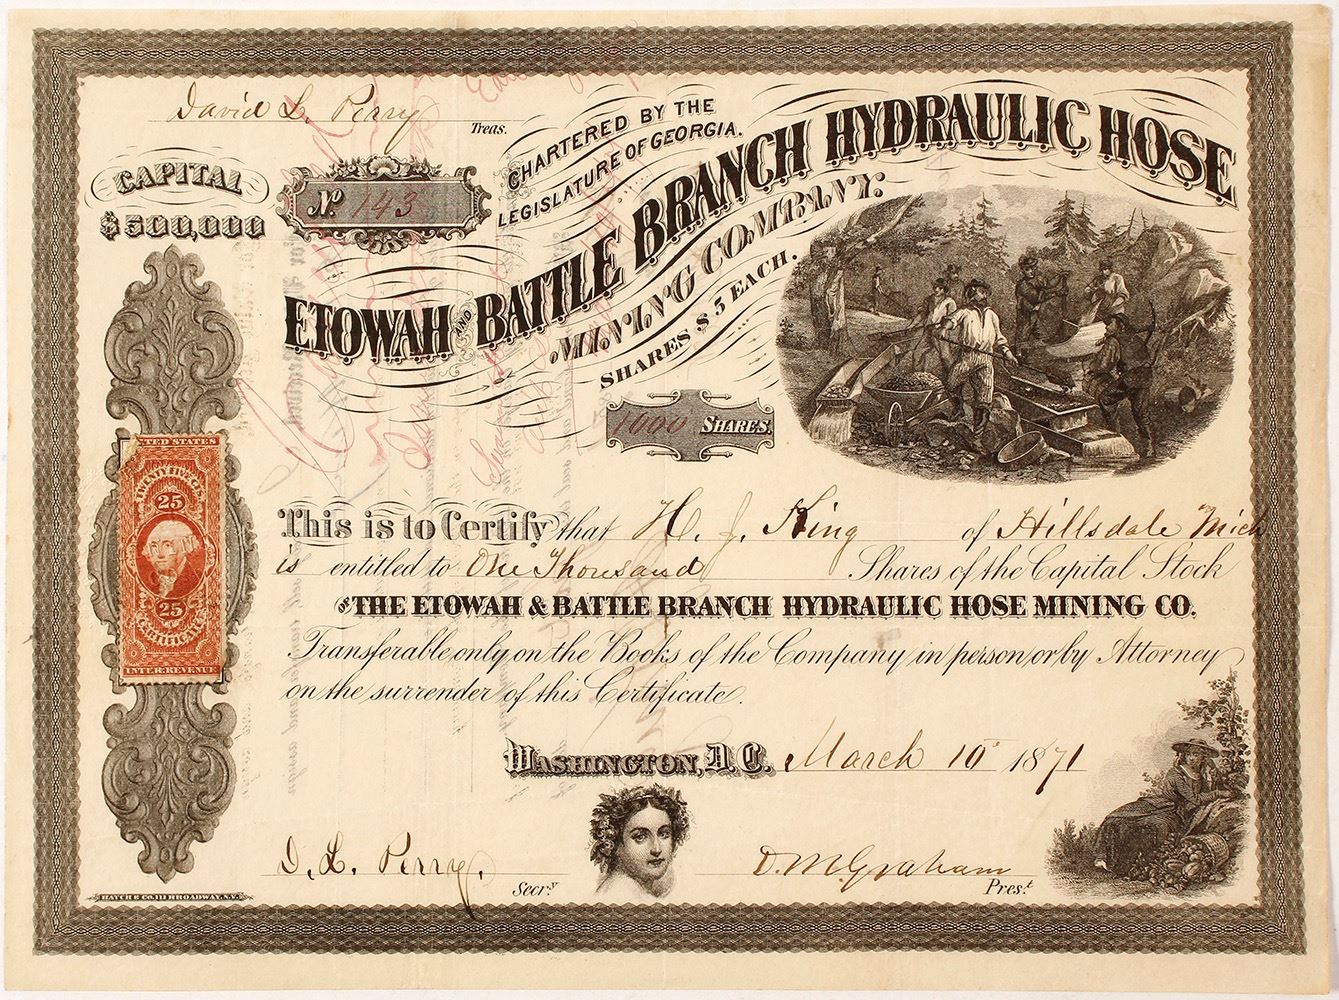 David L. Perry Treas.
CAPITAL
$500,000
No. 143
CHARTERED BY THE
LEGISLATURE OF GEORGIA.
ETOWAH AND BATTLE BRANCH HYDRAULIC HOSE
MINING COMPANY.
SHARES $5 EACH.
1000 SHARES
TED STATES
TWENTY FIVE CTS.
25
25
CERTIFICATE
INTER. REVENUE
This is to Certify that H. J. King of Hillsdale Mich
is entitled to One Thousand Shares of the Capital Stock
OF THE ETOWAH & BATTLE BRANCH HYDRAULIC HOSE MINING CO.
Transferable only on the Books of the Company in person or by Attorney
on the surrender of this Certificate.
WASHINGTON, D.C. March 10 1871
D. L. Perry. Secry
D. M. Graham Prest
HATCH & CO. 111 BROADWAY, N.Y.